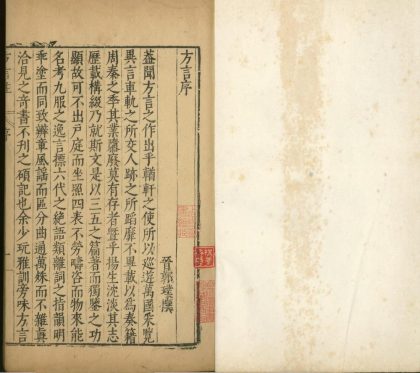 方言序
晉郭璞撰
蓋聞方言之作出乎輶軒之使所以巡遊萬國采覽
異言車軌之所交人跡之所蹈靡不畢載以爲奏籍
周秦之季其業隳廢莫有存者暨乎揚生沈淡其志
歷載構綴乃就斯文是以三五之篇著而獨鑒之功
顯故可不出戶庭而坐照四表不勞疇咨而物來能
名考九服之逸言摽六代之絕語類離詞之指韻明
乖塗而同致辨章風謠而區分曲通萬殊而不雜真
洽見之奇書不刊之碩記也余少玩雅訓旁味方言